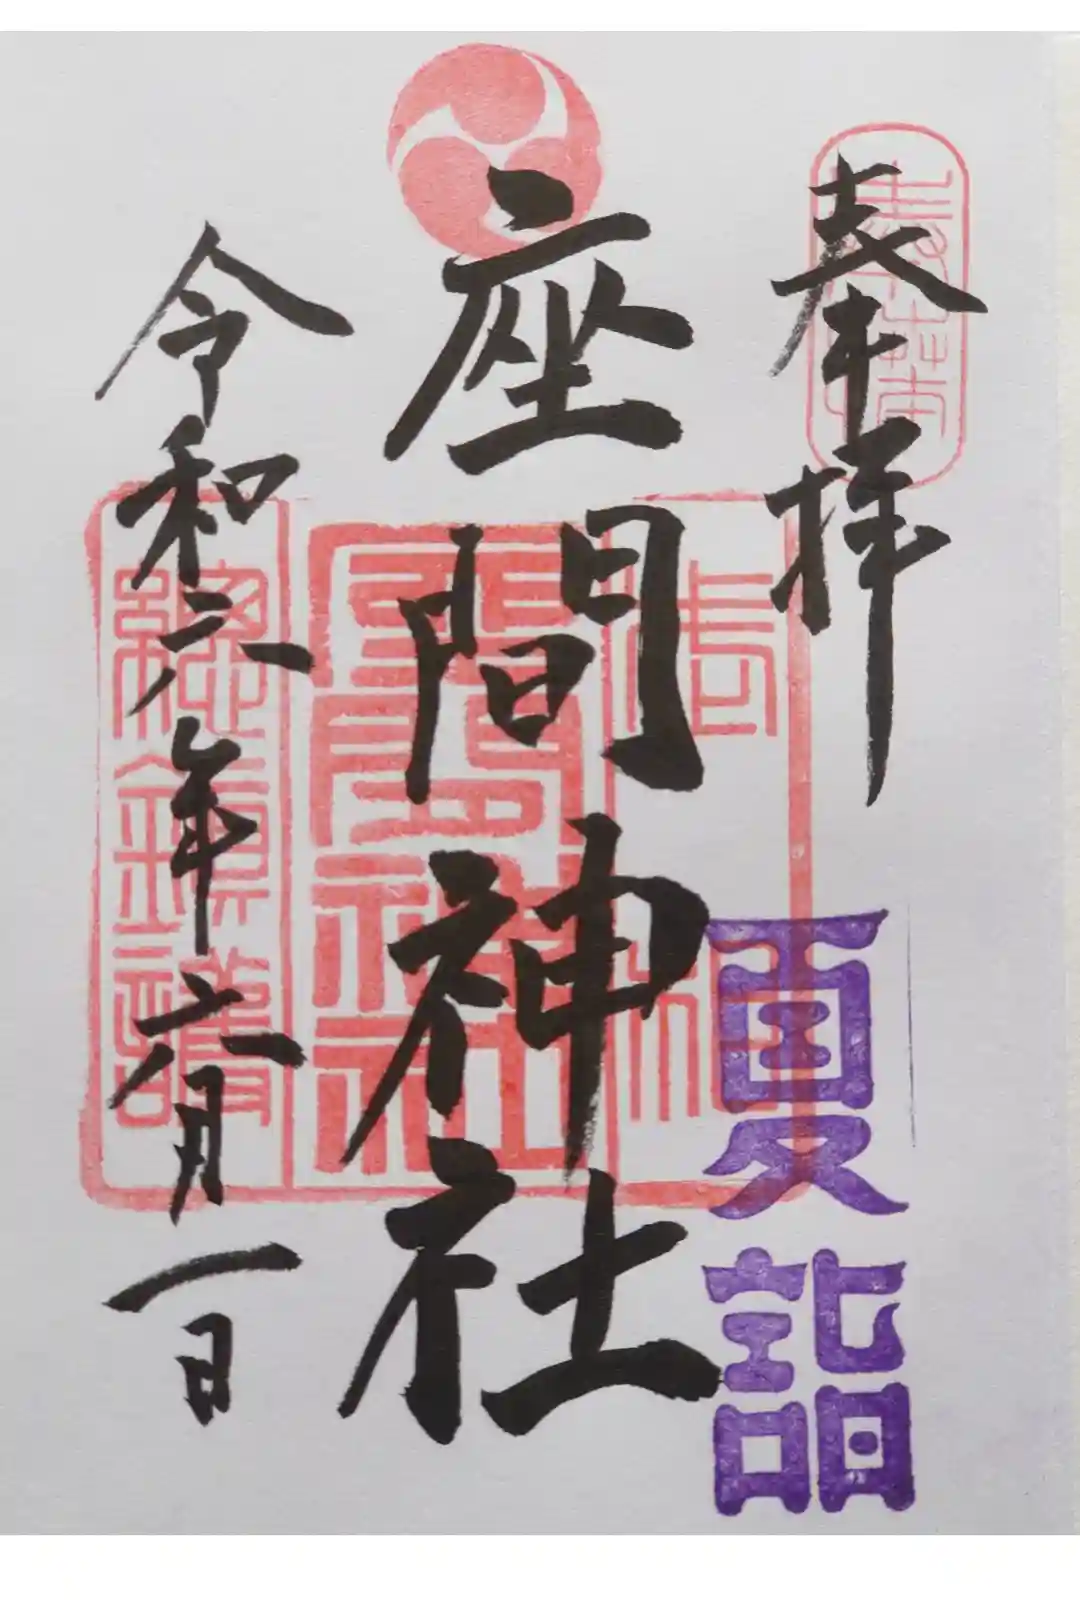 奉拝
夏詣
座間神社
相模
座間神社
總鎮護
令和六年六月一日